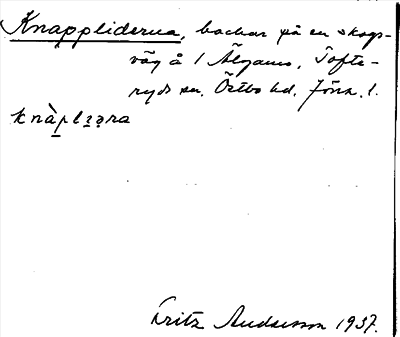 Knappliderna, backar på en skogs-
väg å 1 Älgans, Tofte-
ryds sn. Östbo hd, Jönk. l.
knàplɪəra
Fritz Andersson 1937.